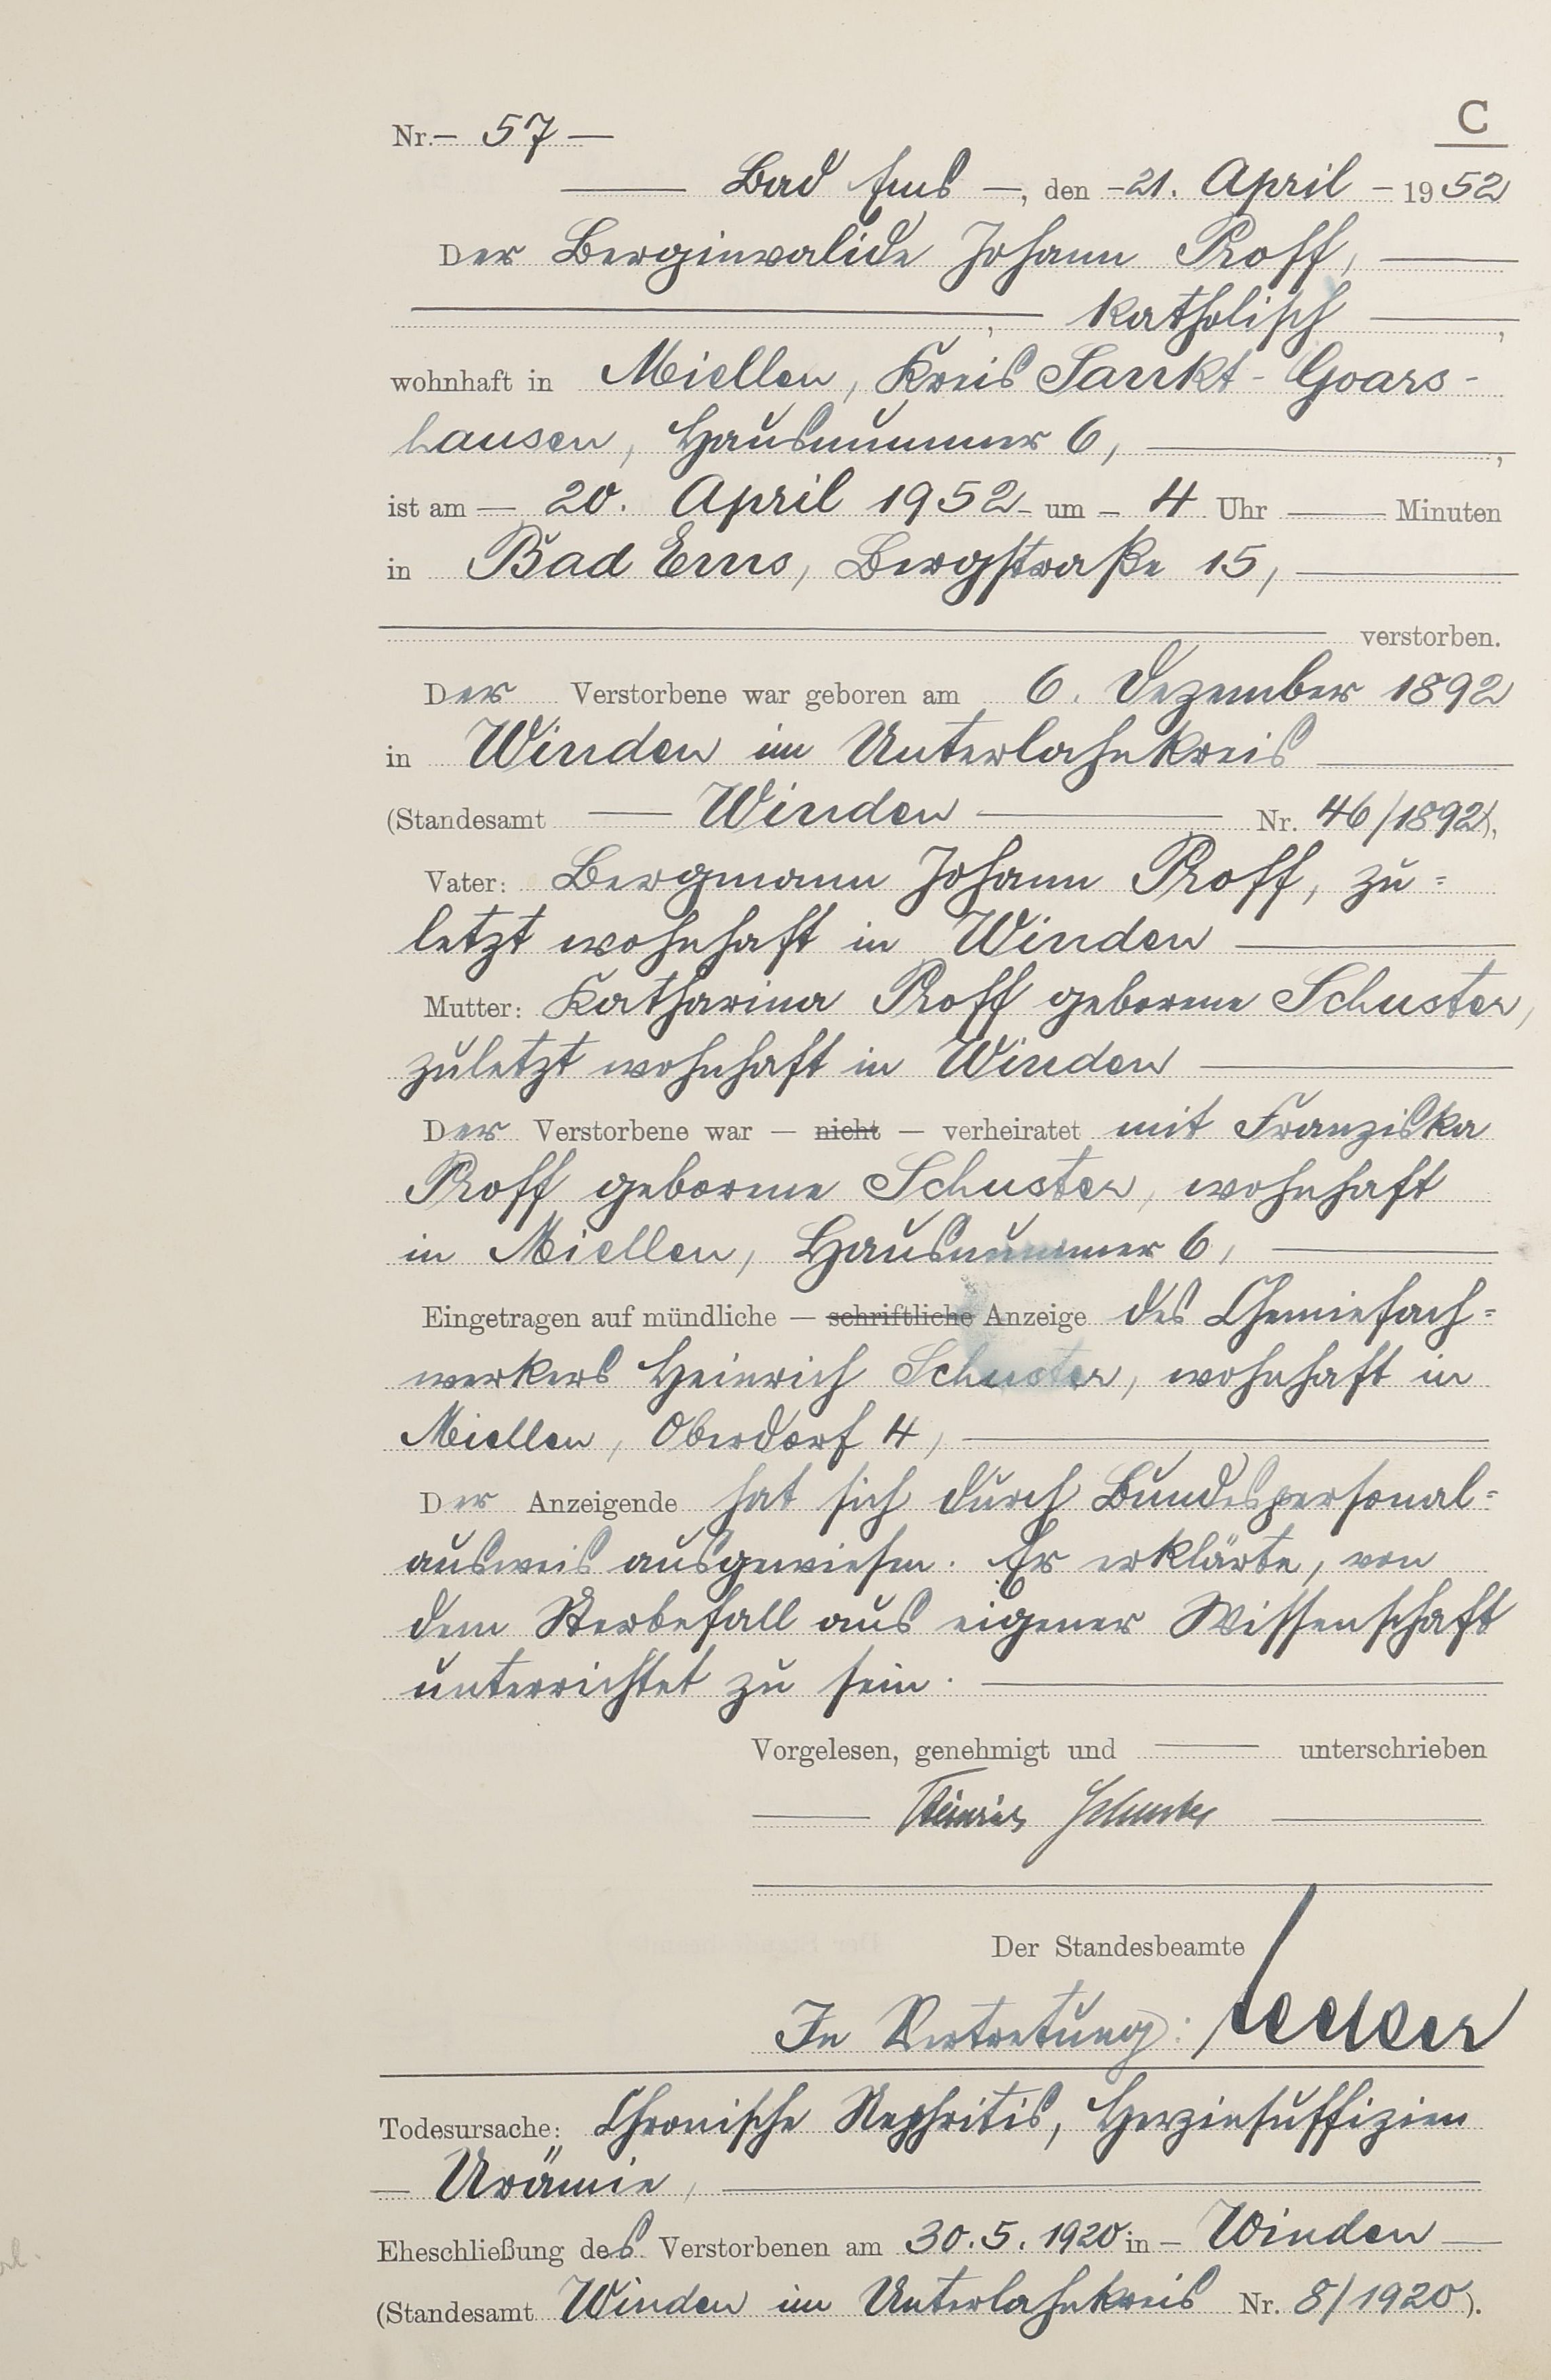 C
Nr. — 57 —
Bad Ems —, den — 21. April — 1952
Der Berginvalide Johann Proff,
, katholisch ,
wohnhaft in Miellen, Kreis Sankt-Goars-
hausen, Hausnummer 6, ,
ist am — 20. April 1952 — um — 4 Uhr — Minuten
in Bad Ems, Bergstraße 15,
verstorben.
Der Verstorbene war geboren am 6. Dezember 1892
in Winden im Unterlahnkreis
(Standesamt — Winden — Nr. 46/1892),
Vater: Bergmann Johann Proff, zu=
letzt wohnhaft in Winden
Mutter: Katharina Proff geborene Schuster,
zuletzt wohnhaft in Winden
Der Verstorbene war — nicht — verheiratet mit Franziska
Proff geborene Schuster, wohnhaft
in Miellen, Hausnummer 6,
Eingetragen auf mündliche — schriftliche Anzeige des Chemiefach=
werkers Heinrich Schuster, wohnhaft in
Miellen, Oberdorf 4,
Der Anzeigende hat sich durch Bundespersonal=
ausweis ausgewiesen. Er erklärte, von
dem Sterbefall aus eigener Wissenschaft
unterrichtet zu sein.
Vorgelesen, genehmigt und — unterschrieben
Heinrich Schuster
Der Standesbeamte
In Vertretung:
Todesursache: Chronische Nephritis, Herzinsuffizien
— Urämie,
Eheschließung des Verstorbenen am 30.5.1920 in — Winden —
(Standesamt Winden im Unterlahnkreis Nr. 8/1920).